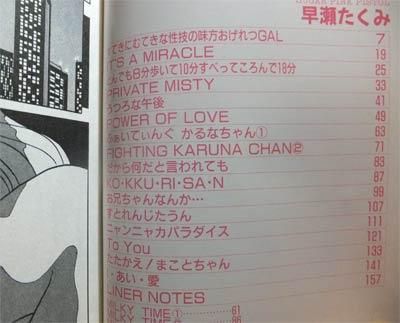 SUGAR PINK PISTOL
早瀬たくみ
てきにむてきな性技の味方おげれつGAL 7
IT'S A MIRACLE 19
とんでも8分歩いて10分すべってころんで18分 25
PRIVATE MISTY 33
うつろな午後 41
POWER OF LOVE 49
ふぁいてぃんぐ かるなちゃん① 63
FIGHTING KARUNA CHAN② 71
だから何だと言われても 83
KO・KKU・RI・SA・N 87
お兄ちゃんなんか… 99
すとれんじたうん 107
ニャンニャカパラダイス 111
To You 121
たたかえ!まことちゃん 133
・あい・愛 141
LINER NOTES 157
MILKY TIME① 61
TIME② 86